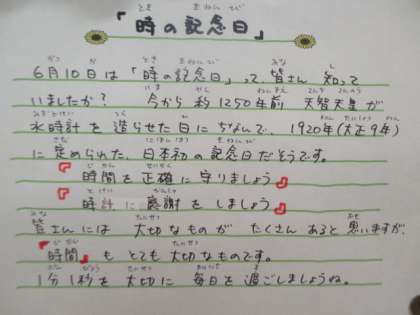 『時の記念日』
6月10日は「時の記念日」って皆さん知って
いましたか？ 今から約1250年前 天智天皇が
水時計を造らせた日にちなんで、1920年(大正9年)
に定められた、日本初の記念日だそうです。
『時間を正確に守りましょう』
『時計に感謝をしましょう』
皆さんには 大切なものが たくさんあると思いますが、
『時間』もとても大切なものです。
1分1秒を大切に 毎日を過ごしましょうね。